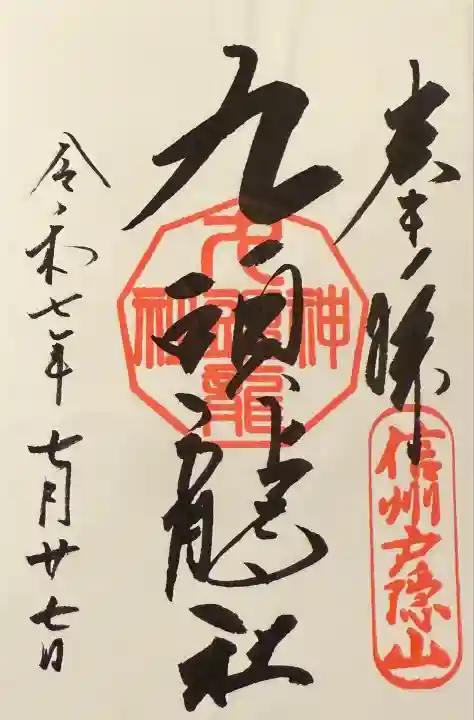 奉拝
信州戸隠山
九頭龍社
九頭龍
神社
令和七年 七月廿七日